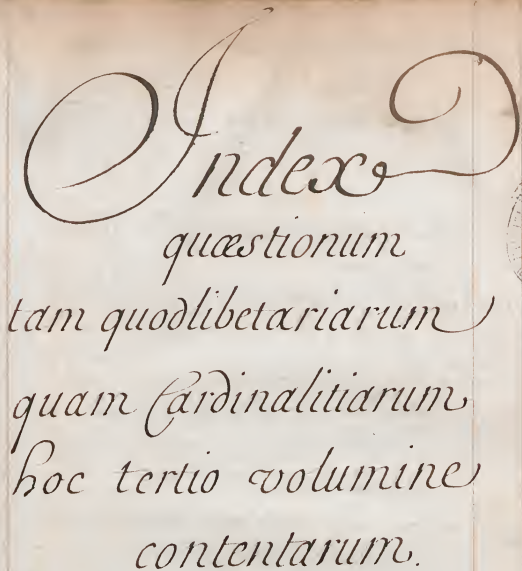 Index
quæstionum
tam quodlibetariarum
quam Cardinalitiarum
hoc tertio volumine
contentarum.